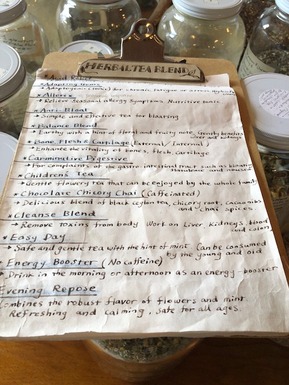 HERBAL TEA BLEND
for chronic fatigue or
* Allergy
* Relieve Seasonal Allergy Symptoms Nutritive tonic
* Anti-Bloat
* Simple and effective Tea for bloating
* Balance Blend
* Earthy with a hint of floral and fruity note,
* Bone Flesh & Cartilage (External/Internal)
* Enhance the vitality of bones, flesh cartilage
* Carminative Digestive
* For complaints of the gastro intestinal tract such as bloating,
flatulence and nausea
* Children's Tea
* Gentle flowery tea that can be enjoyed by the whole family
* Choco Love Chicory Chai (Caffeinated)
* Delicious blend of black ceylon tea, chicory root, cacao nibs
and chai spices
* Cleanse Blend
* Remove toxins from body Work on Liver kidneys blood
and colon
* Easy Day
* Safe and gentle tea with the hint of mint Can be consumed
by the young and old
* Energy Booster (No caffeine)
* Drink in the morning or afternoon as an energy-booster
Evening Repose
Combines the robust flavor of flowers and mint
Refreshing and Calming. Safe for all ages